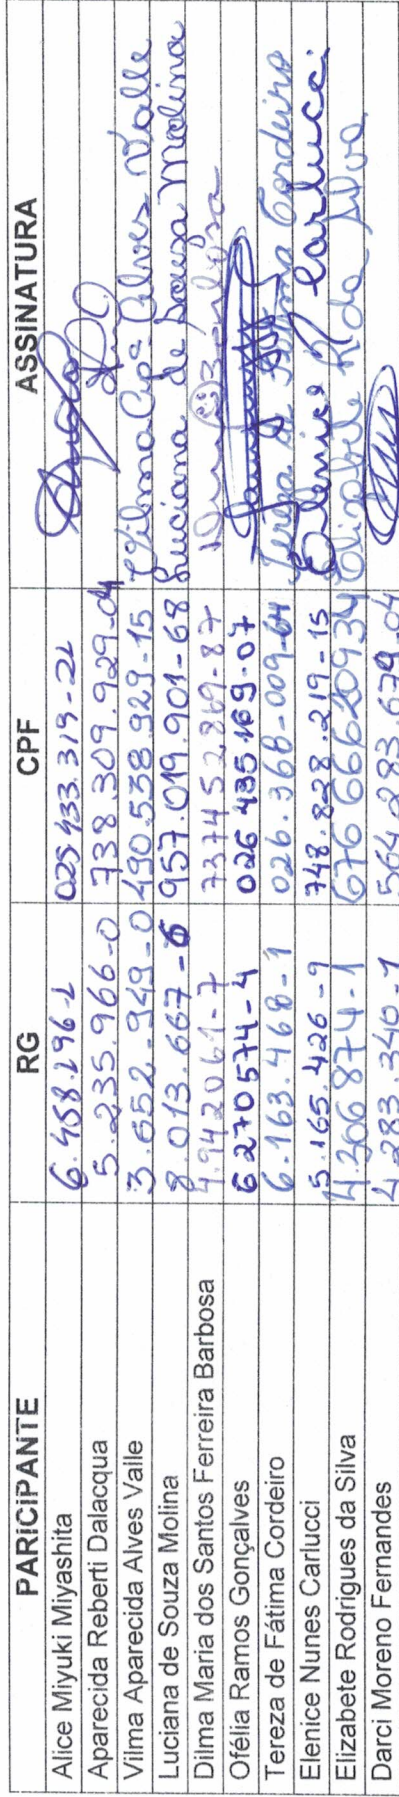 PARICIPANTE RG CPF ASSINATURA
Alice Miyuki Miyashita 6.458.296-2 025.433.319-22
Aparecida Reberti Dalacqua 5.235.966-0 738.309.929-04
Vilma Aparecida Alves Valle 3.652.949-0 490.538.929-15 Vilma Apª Alves Valle
Luciana de Souza Molina 8.013.667-6 957.019.901-68 Luciana de Souza Molina
Dilma Maria dos Santos Ferreira Barbosa 4.942061-7 737452869-87
Ofélia Ramos Gonçalves 6270574-4 026435169-07
Tereza de Fátima Cordeiro 6.163.468-1 026.368-009-64 Tereza de Fátima Cordeiro
Elenice Nunes Carlucci 5.165.426-9 748.828.219-15 Elenice N Carlucci
Elizabete Rodrigues da Silva 4.366874-1 67666620934 Elizabete R da Silva
Darci Moreno Fernandes 4.283.340-1 564.283.679-04